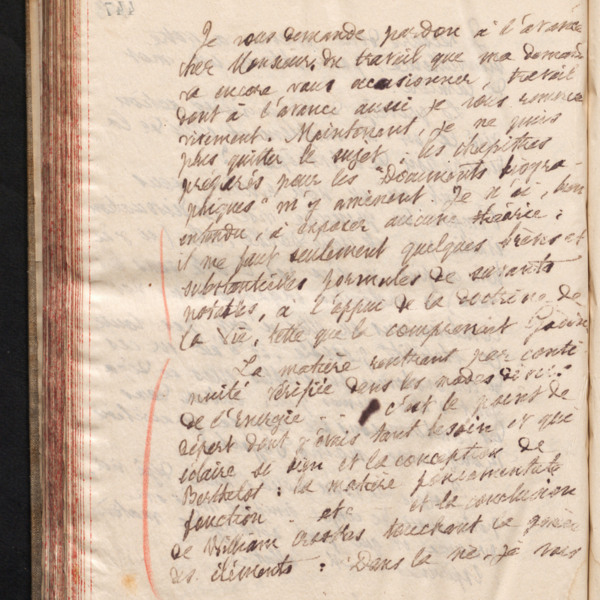 Je vous demande pardon à l'avance
cher Monsieur, du travail que ma demande
va encore vous occasionner, travail
dont à l'avance aussi je vous remercie
vivement. Maintenant, je ne puis
plus quitter le sujet, les chapitres
préparés pour les "Documents biogra-
phiques" m'y amènent. Je n'ai, bien
entendu, à exposer aucune théorie :
il me faut seulement quelques brèves et
substantielles formules de savants
notables, à l'appui de la doctrine de
la Vie, telle que la comprenait
La matière rentrant par conti
nuité vérifiée dans les modes
de l'Energie -- c'est le point de
départ dont j'avais tant besoin et que
éclaire si bien et la conception de
Berthelot : la matière fonction
etc et la conclusion
de William Crookes touchant la genèse
des éléments : Dans la